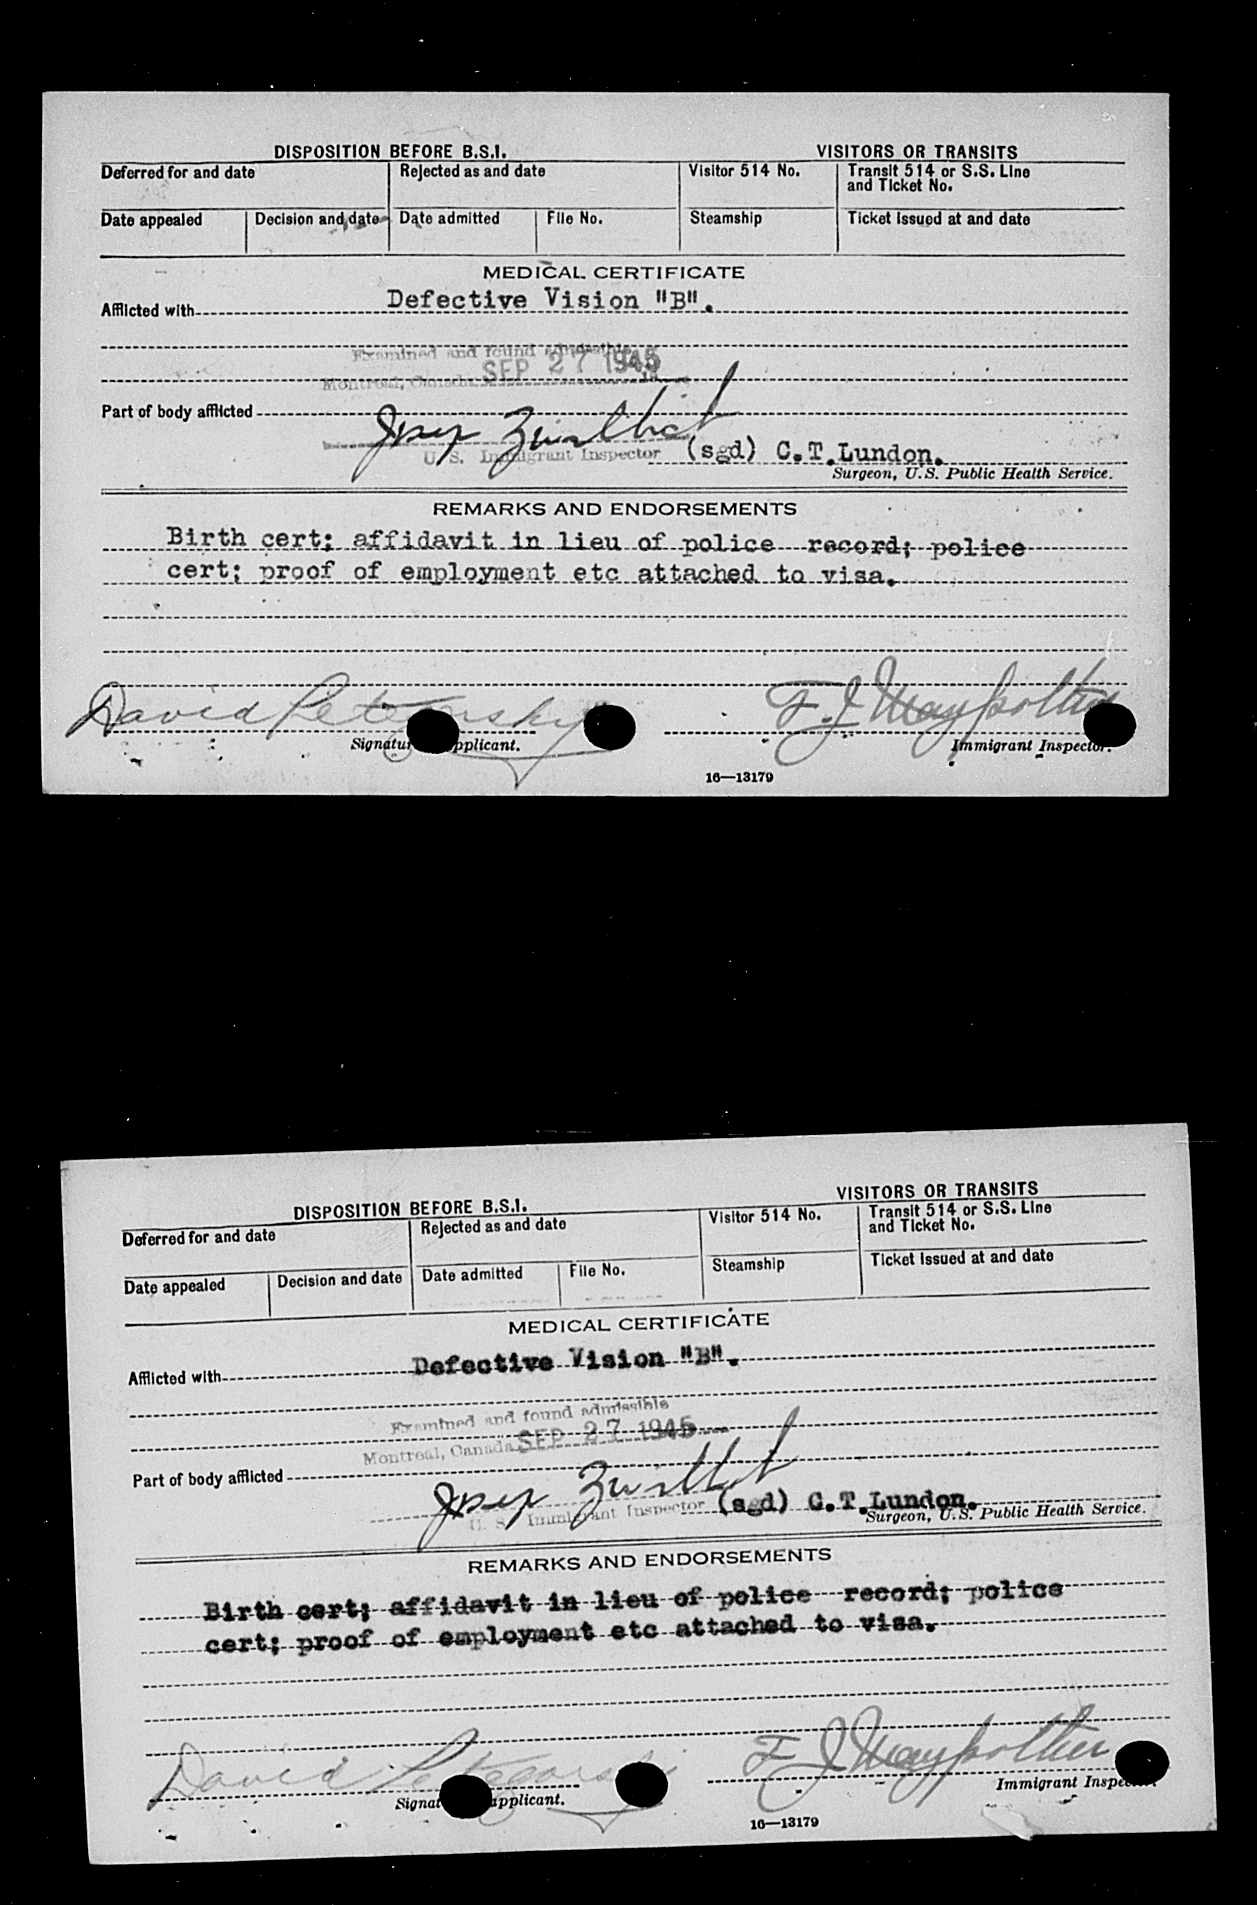 DISPOSITION BEFORE B.S.I. VISITORS OR TRANSITS
Deferred for and date Rejected as and date Visitor 514 No. Transit 514 or S.S. Line
and Ticket No.
Date appealed Decision and date Date admitted File No. Steamship Ticket issued at and date
MEDICAL CERTIFICATE
Afflicted with Defective Vision "B".
Examined and found admissible
Montreal, Canada SEP 27 1945
Part of body afflicted
U. S. Immigrant Inspector (sgd) C.T.Lundon.
Surgeon, U.S. Public Health Service.
REMARKS AND ENDORSEMENTS
Birth cert; affidavit in lieu of police record; police
cert; proof of employment etc attached to visa.
David Petegorsky F. J.
Signature applicant. Immigrant Inspector.
16—13179
DISPOSITION BEFORE B.S.I. VISITORS OR TRANSITS
Deferred for and date Rejected as and date Visitor 514 No. Transit 514 or S.S. Line
and Ticket No.
Date appealed Decision and date Date admitted File No. Steamship Ticket issued at and date
MEDICAL CERTIFICATE
Afflicted with Defective Vision "B".
Examined and found admissible
Montreal, Canada SEP 27 1945
Part of body afflicted
U. S. Immigrant Inspector (sgd) C.T.Lundon.
Surgeon, U.S. Public Health Service.
REMARKS AND ENDORSEMENTS
Birth cert; affidavit in lieu of police record; police
cert; proof of employment etc attached to visa.
David Petegorsky F J
Signat applicant. Immigrant Inspector.
16—13179